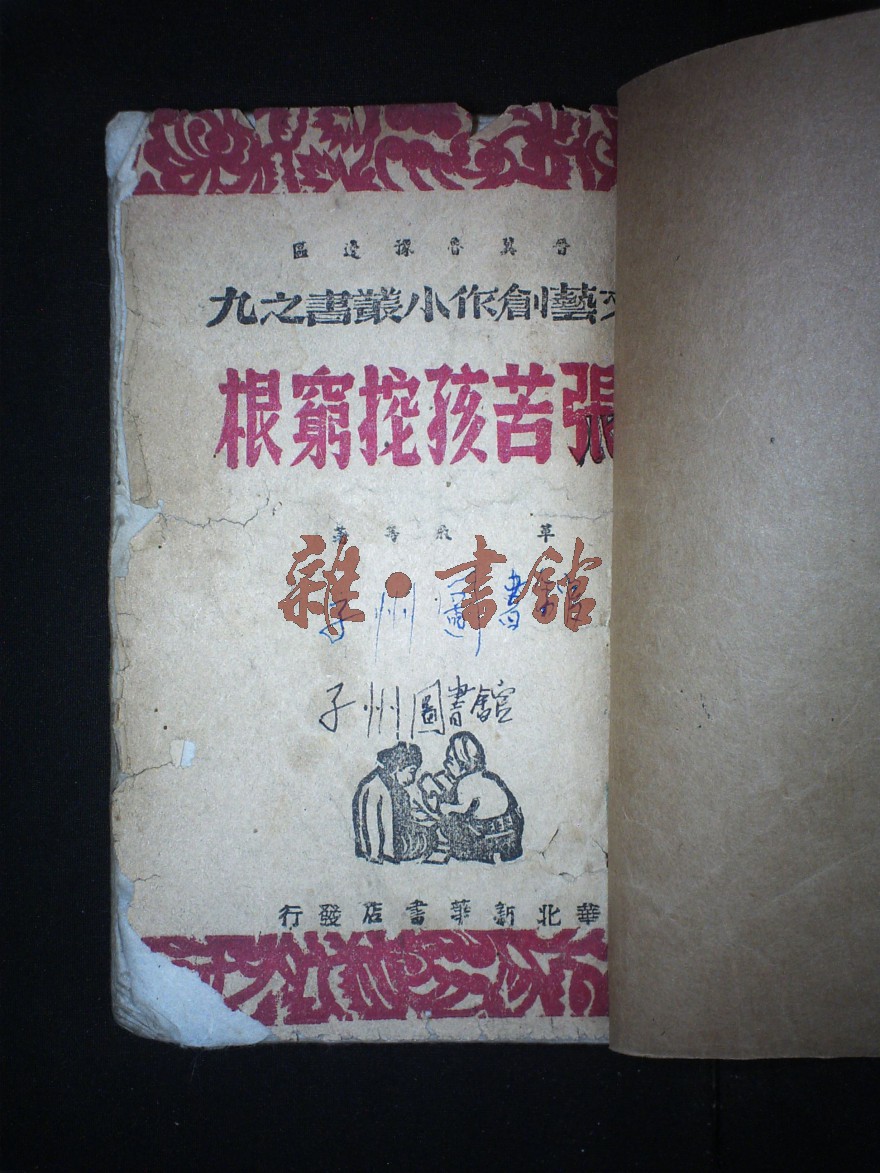 晉冀魯豫邊區
文藝創作小叢書之九
張苦孩挖窮根
草 等著
雜·書館
子州圖書館
子州圖書館
華北新華書店發行